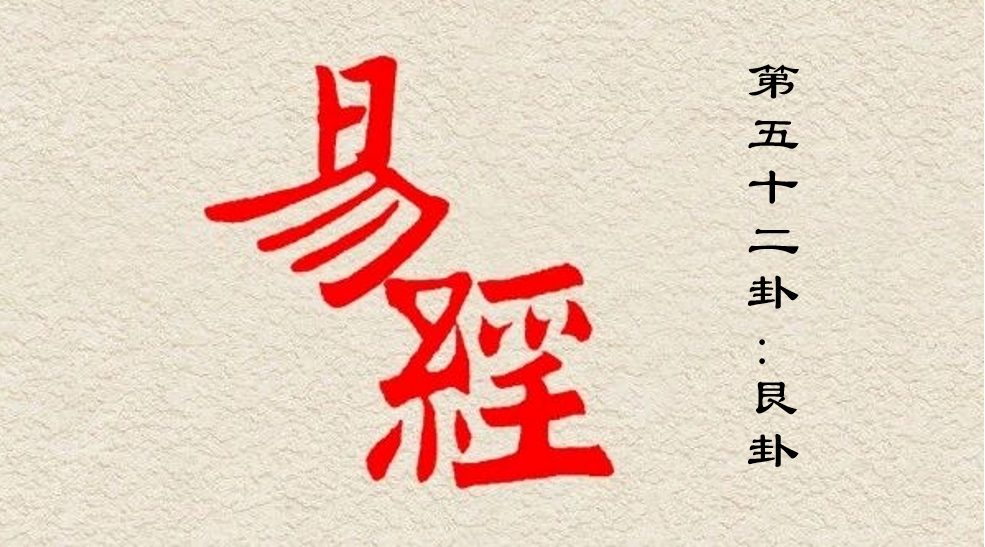 易經
第五十二卦:艮卦